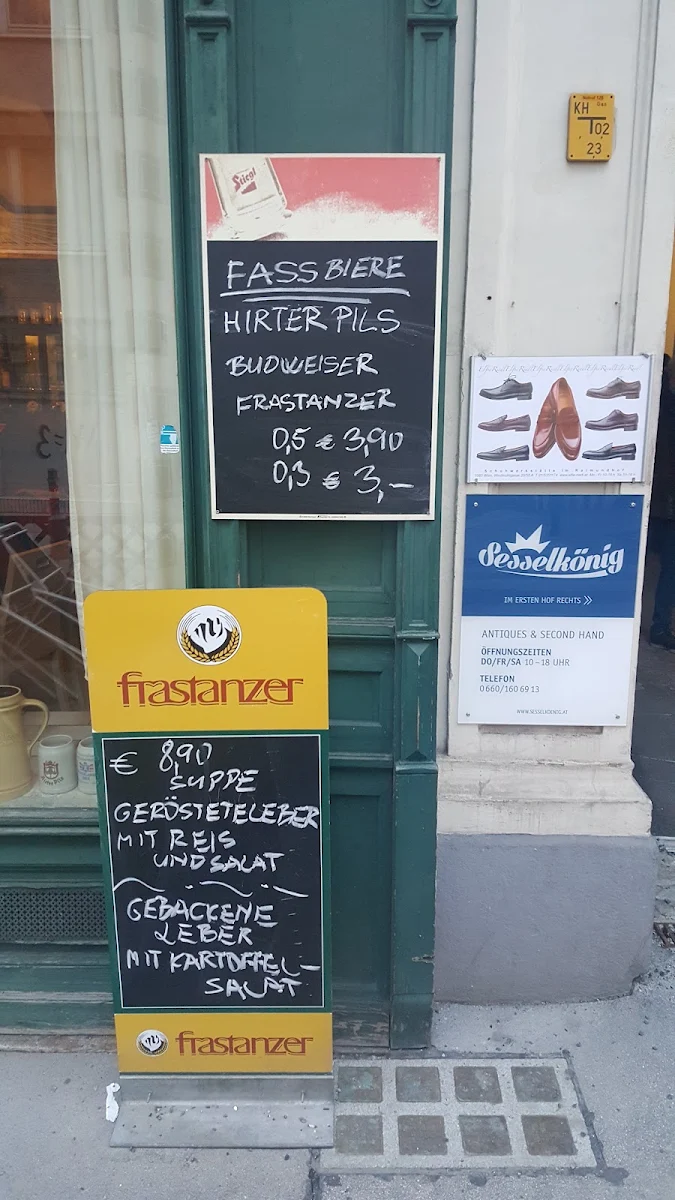 Stiegl
FASSBIERE
HIRTER PILS
BUDWEISER
FRASTANZER
0,5 € 3,90
0,3 € 3,-
KH
T02
23
Sesselkönig
IM ERSTEN HOF RECHTS
ANTIQUES & SECOND HAND
ÖFFNUNGSZEITEN
DO/FR/SA 10 – 18 UHR
TELEFON
0 660/160 69 13
WWW.SESSELKOENIG.AT
frastanzer
€ 8,90
SUPPE
GERÖSTETELEBER
MIT REIS
UND SALAT
GEBACKENE
LEBER
MIT KARTOFFEL-
SALAT
frastanzer